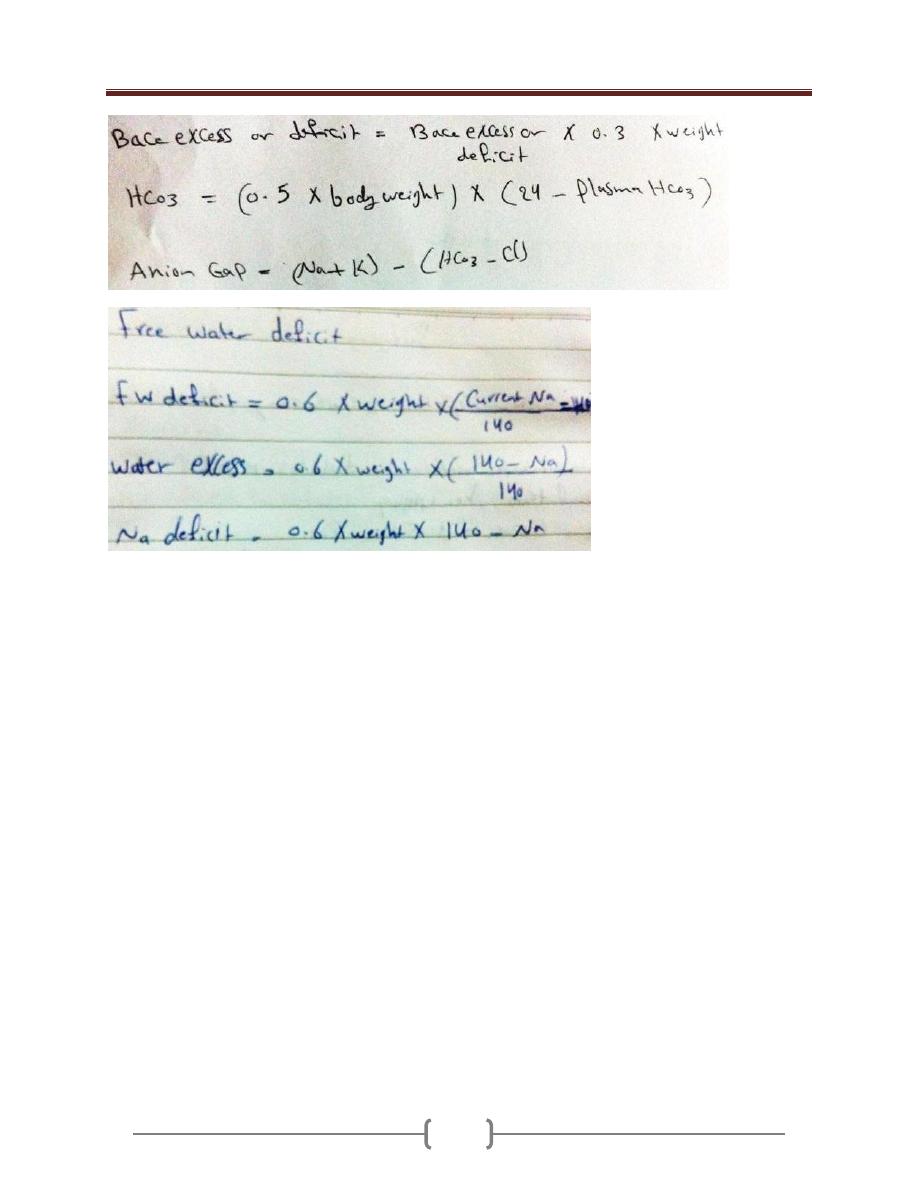 Bace excess or deficit = Bace excess or X 0.3 X weight
deficit
HCO3 = (0.5 X body weight) X (24 - Plasma HCO3)
Anion Gap = (Na+ K) - (HCO3 - Cl)
Free water deficit
Fw deficit = 0.6 X weight x (Current Na - 140
140
water excess = 0.6 X weight X ( 140 - Na)
140
Na deficit = 0.6 X weight X 140 - Na